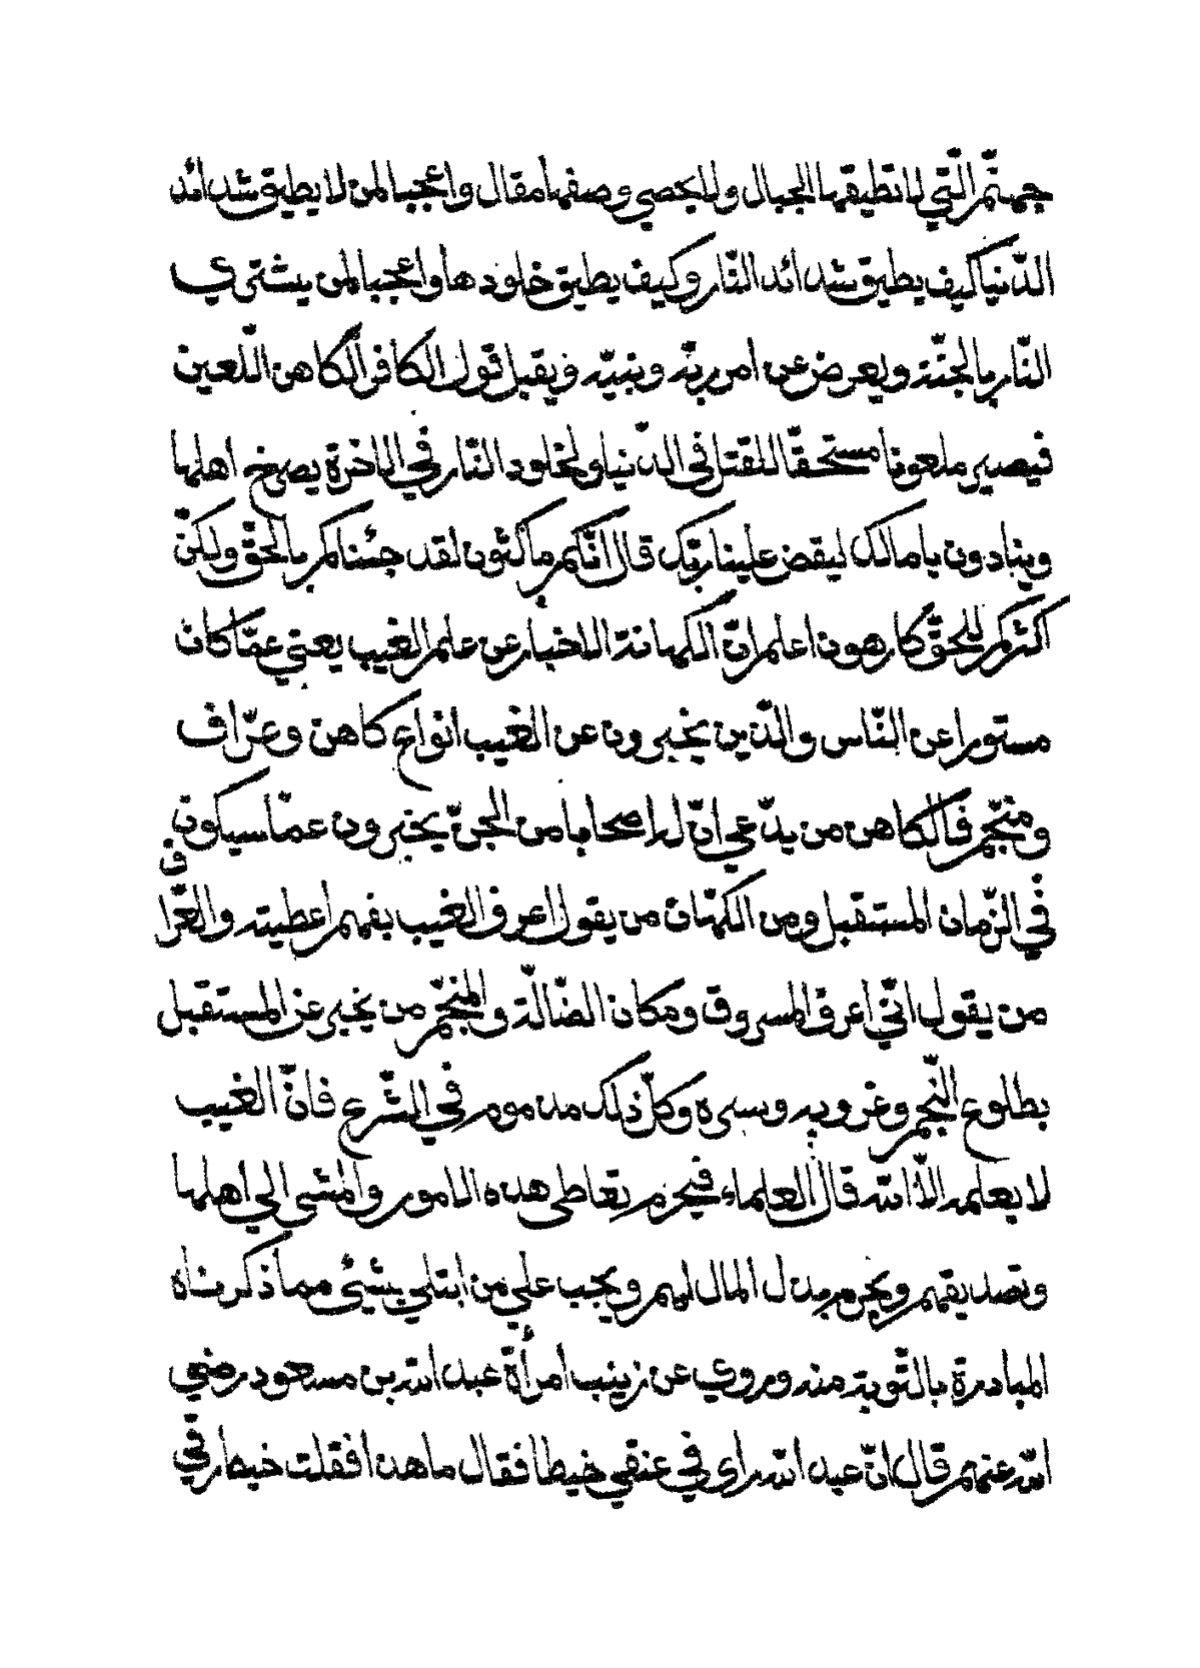 جهنّم الّتي لا تطيقها الجبال ولا يحصي وصفها مقال واعجبا لمن لا يطيق شدائد
الدّنيا كيف يطيق شدائد النّار وكيف يطيق خلودها واعجبا لمن يشتري
النّار بالجنّة ويعرض عن امر ربّه ونبيّه ويقبل قول الكافر الكاهن اللّعين
فيصير ملعونا مستحقّا للقتل في الدّنيا ولخلود النّار في الاخرة يصرخ اهلها
وينادون يا مالك ليقض علينا ربّك قال انّكم ماكثون لقد جئناكم بالحقّ ولكنّ
اكثركم للحقّ كارهون اعلم انّ الكهانة الاخبار عن علم الغيب يعني عمّا كان
مستورا عن النّاس والّذين يخبرون عن الغيب انواع كاهن وعرّاف
ومنجّم فالكاهن من يدّعي انّ له اصحابا من الجنّ يخبرون عمّا سيكون
في الزّمان المستقبل ومن الكهّان من يقول اعرف الغيب بفهم اعطيته والعّراف
من يقول انّي اعرف المسروق ومكان الضّالّة والمنجّم من يخبر عن المستقبل
بطلوع النّجم وغروبه وسيره وكلّ ذلك مذموم في الشّرع فانّ الغيب
لا يعلمه الّا الله قال العلماء فيحرم تعاطى هذه الامور والمشي الي اهلها
وتصديقهم ويحرم بذل المال لهم ويجب علي من ابتلي بشيئ مما ذكرناه
المبادرة بالتّوبة منه وروي عن زينب امرأة عبد الله بن مسعود رضي
الله عنهم قال انّ عبد الله راى في عنقي خيطا فقال ما هذا فقلت خيط رقي